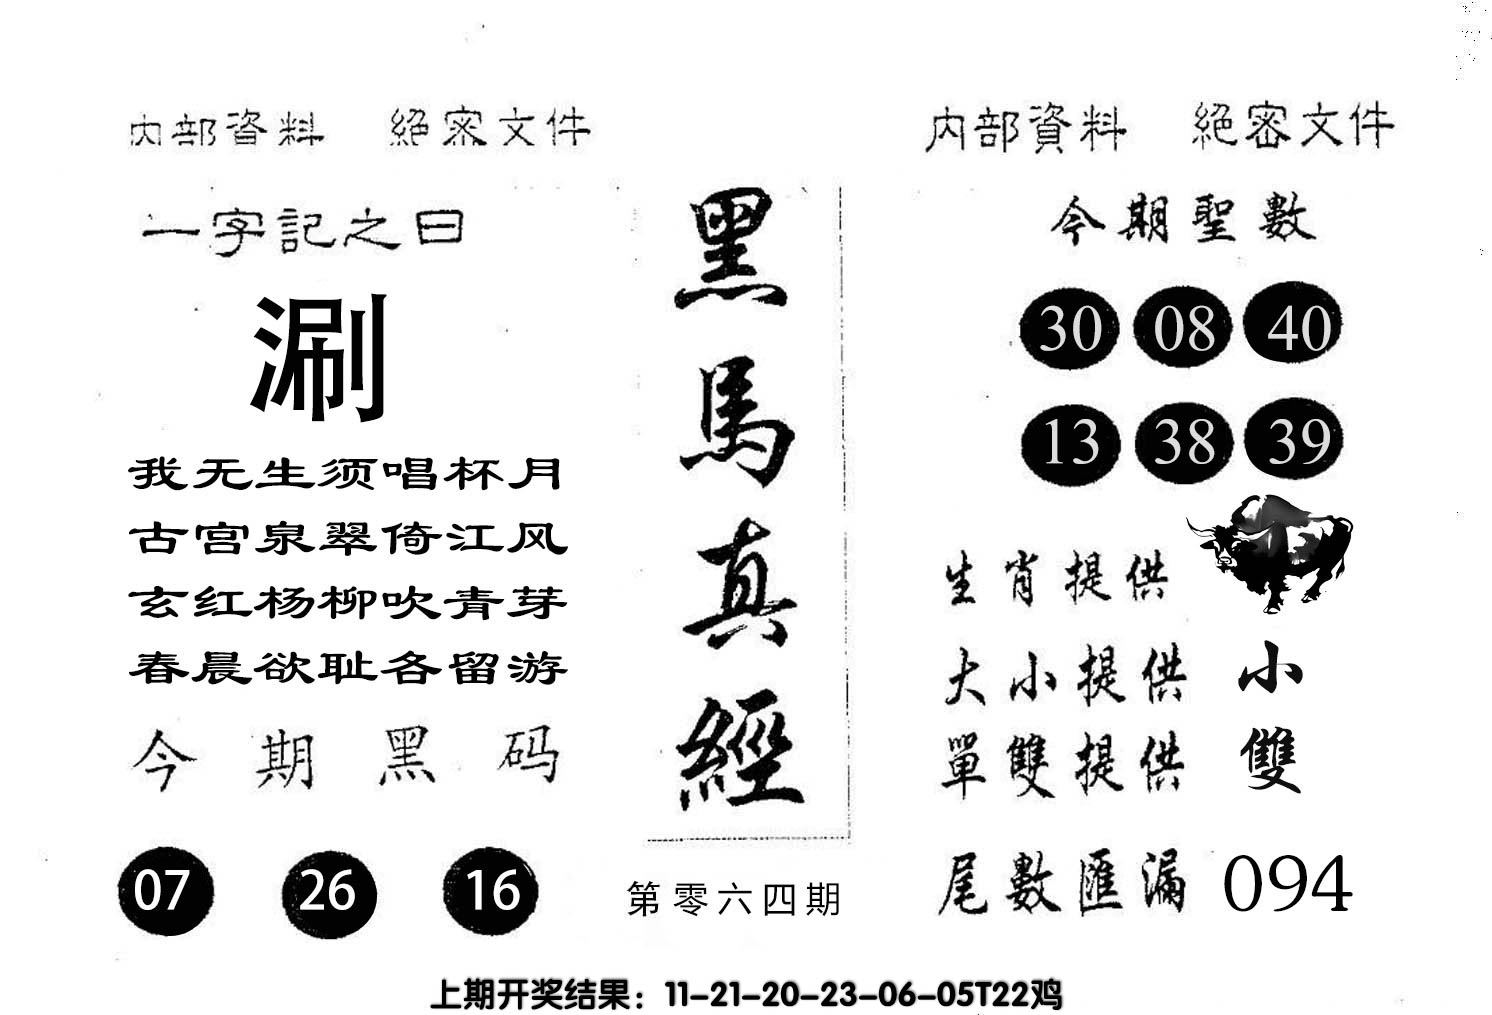 内部資料 絕密文件
一字記之曰
涮
我无生须唱杯月
古宫泉翠倚江风
玄红杨柳吹青芽
春晨欲耻各留游
今期黑码
07 26 16
黑馬真經
第零六四期
内部資料 絕密文件
今期聖數
30 08 40
13 38 39
生肖提供
大小提供 小
單雙提供 雙
尾數匯漏 094
上期开奖结果：11-21-20-23-06-05T22鸡